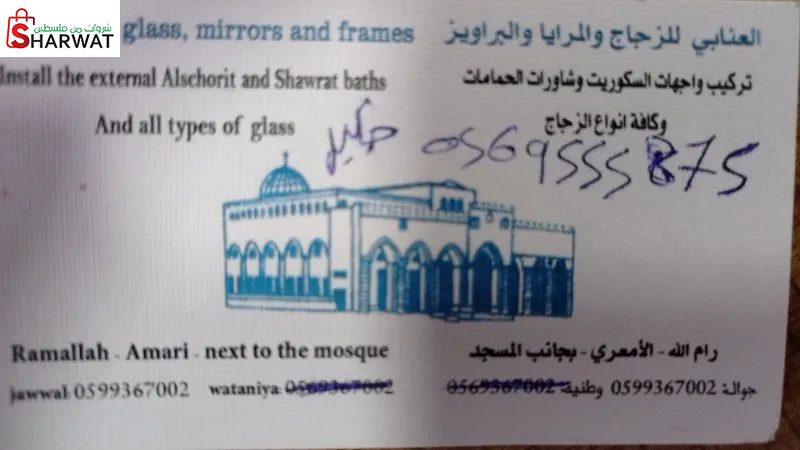 شروات من فلسطين
SHARWAT
glass, mirrors and frames
العنابي للزجاج والمرايا والبراويز
Install the external Alschorit and Shawrat baths
تركيب واجهات السكوريت وشاورات الحمامات
And all types of glass
وكافة انواع الزجاج
0569555875
Ramallah - Amari - next to the mosque
رام الله - الأمعري - بجانب المسجد
jawwal: 0599367002 wataniya: 0569367002
جوال: 0599367002 وطنية: 0569367002